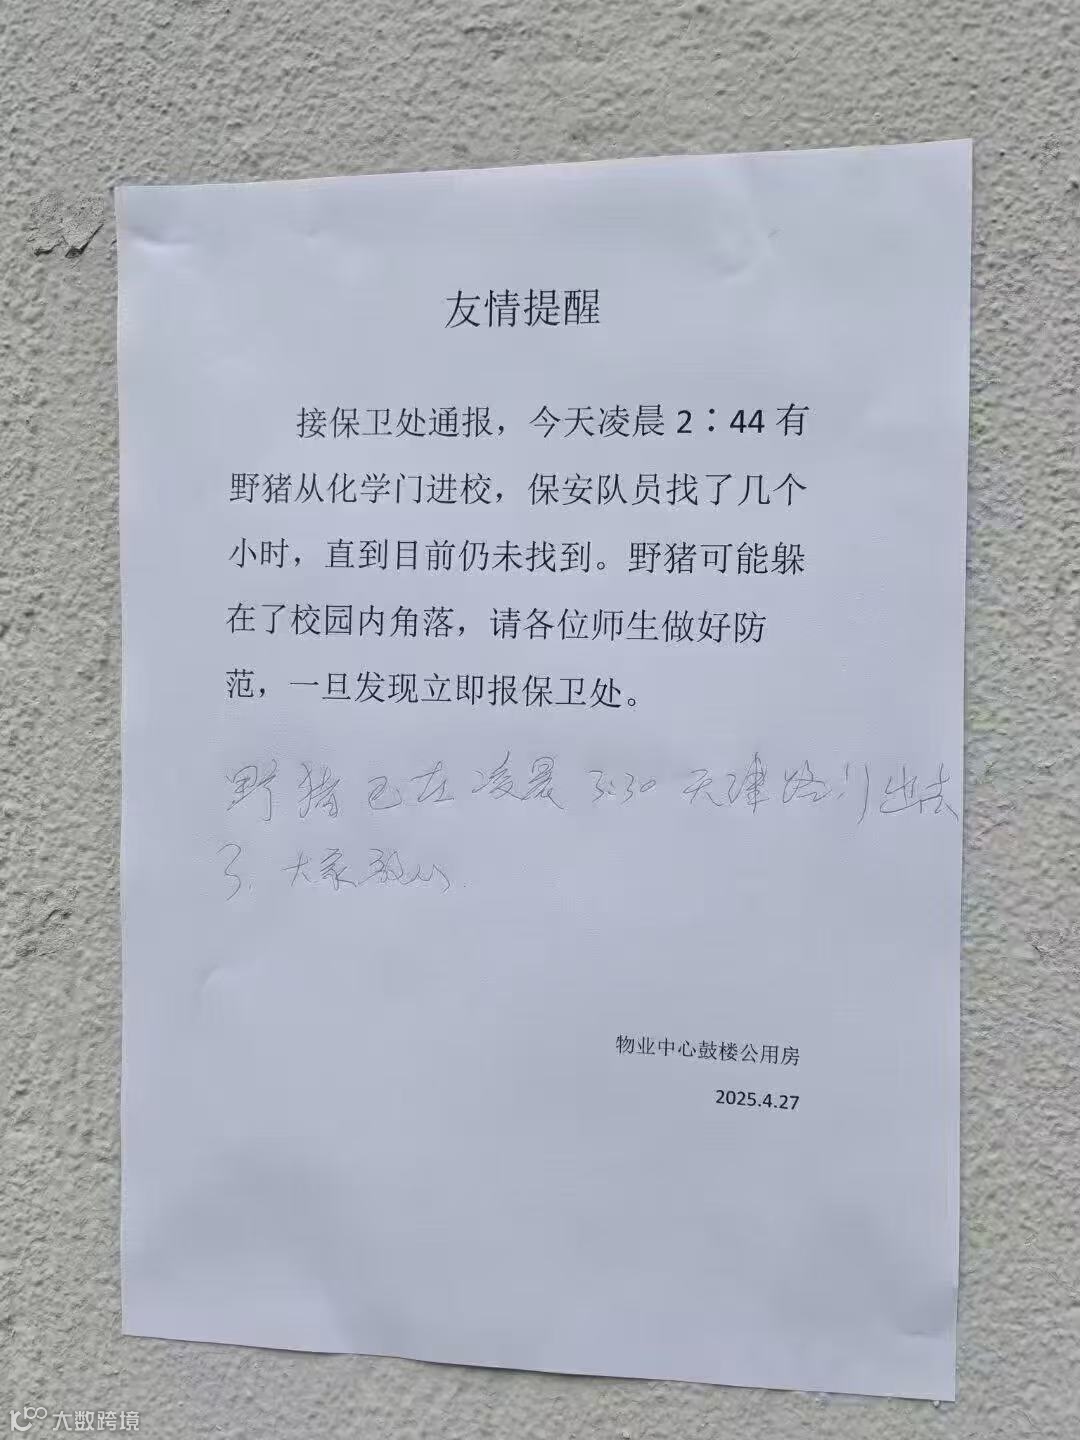 友情提醒
接保卫处通报，今天凌晨 2：44 有
野猪从化学门进校，保安队员找了几个
小时，直到目前仍未找到。野猪可能躲
在了校园内角落，请各位师生做好防
范，一旦发现立即报保卫处。
野猪已在凌晨 3:30 天津路门出去
了. 大家放心.
物业中心鼓楼公用房
2025.4.27
大数跨境